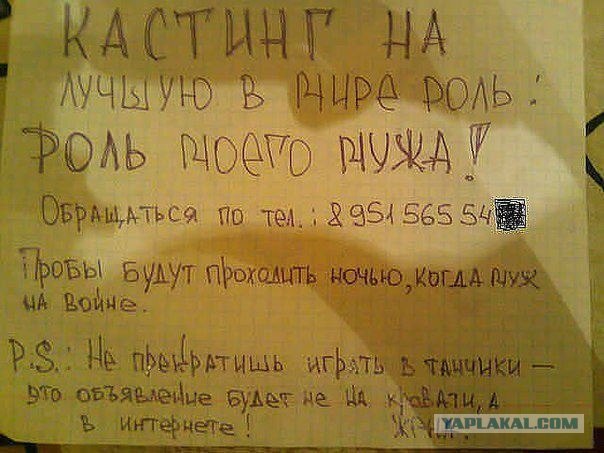 КАСТИНГ НА
ЛУЧШУЮ В МИРЕ РОЛЬ:
РОЛЬ МОЕГО МУЖА!
ОБРАЩАТЬСЯ ПО ТЕЛ.: 8 951 565 54
ПРОБЫ БУДУТ ПРОХОДИТЬ НОЧЬЮ, КОГДА МУЖ
НА ВОЙНЕ.
P.S.: НЕ ПРЕКРАТИШЬ ИГРАТЬ В ТАНЧИКИ —
ЭТО ОБЪЯВЛЕНИЕ БУДЕТ НЕ НА КРОВАТИ, А
В ИНТЕРНЕТЕ!
YAPLAKAL.COM